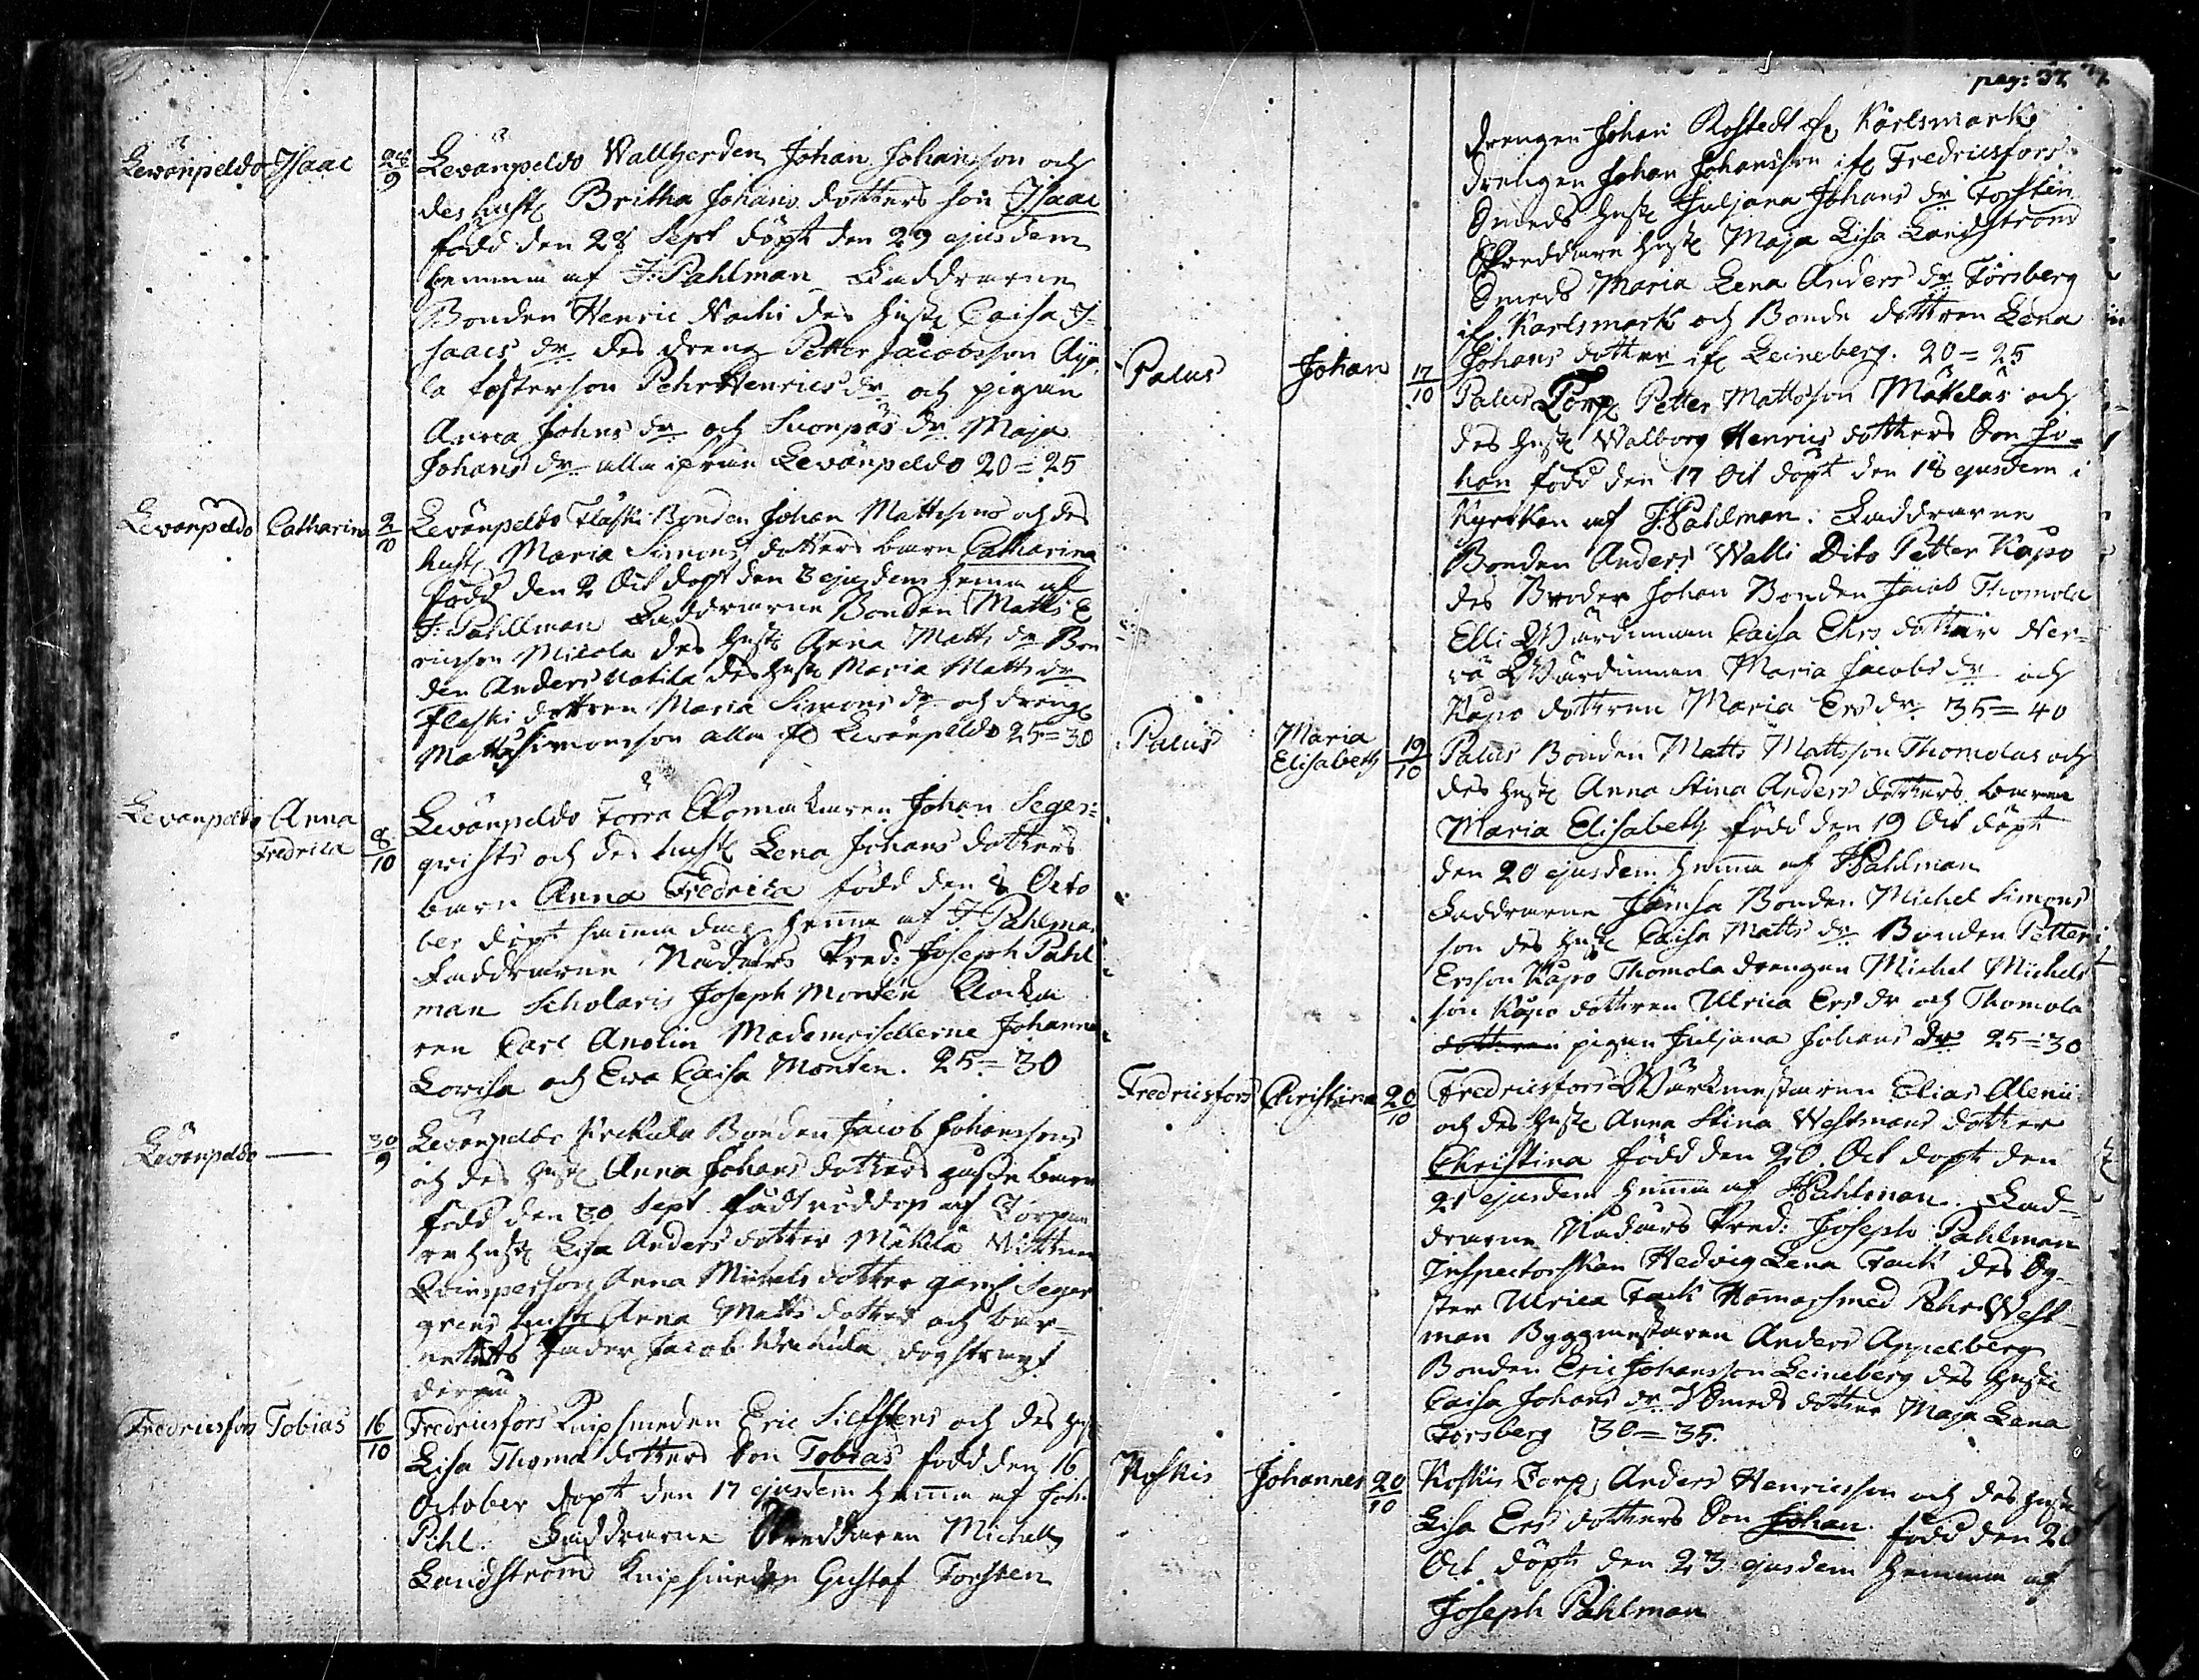 Levänpeldo Isaac 28/9 Levänpeldo Vallherden Johan Johansson och
des hust Britha Johans dotters son Isaac
född den 28 Sept döpt den 29 ejusdem
hemma af J. Pahlman Faddrarne
Bonden Henric Nacki des hust Caisa I-
saacs dr des dreng Petter Jacobsson
fosterson Pehr Henrics dr och pigan
Anna Johns dr och Suonpäs dr Maja
Johans dr alla ifrån Levänpeldo 20=25
Levänpeldo Catharina 2/10 Levänpeldo Flaski Bonden Johan Mattssons och des
hust Maria Simons dotters barn Catharina
född den 2 Oct döpt den 3 ejusdem hemma af
J. Pahllman Faddrarne Bonden Matts E
ricsson Micola des hust Anna Matts dr Bon
den Anders Notila des hust Maria Matts dr
Flaski dottren Maria Simons dr och drenge
Matts Simonsson alla ifr Levänpeldo 25=30
Levänpeldo Anna Fredrica 8/10 Levänpeldo Torra Skomakaren Johan Seger=
qvists och des hust Lena Johans dotters
barn Anna Fredrica född den 8 Octo
ber döpt samma dag hemma af J. Pahlman
Faddrarne Nådårs Pred: Joseph Pahl
man Scholaris Joseph Montén Klocka
ren Carl Anolin Mademoisellerne Johanna
Lovisa och Eva Caisa Montén. 25=30
Levänpeldo — 30/9 Levänpeldo Krekula Bonden Jacob Johanssons
och des hust Anna Johans dotters gosse barn
född den 30 Sept fådt nöddop af Torpa
re hust Lisa Anders dotter Mäkelä Vittnen
Qvinsperson Anna Michels dotter gamla Seger
qvists hust Anna Matts dotter och bar-
nets fader Jacob Krekula dog straxt
derpå
Fredricsfors Tobias 16/10 Fredricsfors Knipsmeden Eric Silfstens och des hu
Lisa Thomas dotters Son Tobias född den 16
October döpt den 17 ejusdem hemma af Joh
Pihl. Faddrarne Skreddaren Michell
Landström Knipsmeden Gustaf Torsten
pag: 37
drengen Johan Rostedt ifr Karlsmark
drengen Johan Johansson ifr Fredricsfors
Smeds hust Juljana Johans dr Torstén
Skreddare hust Maja Lisa Landströms
Smeds Maria Lena Anders dr Forsberg
ifr Karlsmark och Bonde dottren Lena
Johans dotter ifr Leineberg. 20=25
Palus Johan 17/10 Palus Torp Petter Mattsson Mäkeläs och
des hust Walborg Henrics dotters Son Jo-
han född den 17 Oct döpt den 18 ejusdem i
Kyrckan af J. Pahlman. Faddrarne
Bonden Anders Walli Dito Petter Kapo
des Broder Johan Bonden Jacob Thomola
Elli Wärdinnan Caisa Ehrs dotter Ner-
vä Wärdinnan Maria Jacobs dr och
Kapo dottren Maria Ers dr 35=40
Palus Maria Elisabeth 19/10 Palus Bonden Matts Mattsson Thomolas och
des hust Anna Stina Anders dotters barn
Maria Elisabeth född den 19 Oct döpt
den 20 ejusdem hemma af J. Pahlman
Faddrarne Jämsa Bonden Michel Simons
son des hust Caisa Matts dr Bonden Petter
Ersson Kapo Thomola drengen Michel Michels
son Kapo dottren Ulrica Ers dr och Thomola
dottren pigan Juljana Johans dr 25=30
Fredricsfors Christina 20/10 Fredricsfors Wärkmestaren Elias Alenii
och des hust Anna Stina Westmans dotter
Christina född den 20. Oct döpt den
21 ejusdem hemma af J. Pahlman. Fad-
drarne Nådårs Pred: Joseph Pahlman
Inspectorskan Hedvig Lena Tack des Sy-
ster Ulrica Tack Hamarsmed Pehr West-
man Byggmestaren Anders Appelberg
Bonden Eric Johansson Leineberg des hust
Caisa Johans dr Smeds dotter Maja Lena
Forsberg 30=35.
Koskis Johannes 20/10 Koskis Torp Anders Henricsson och des hust
Lisa Ers dotters Son Johan. född den 20
Oct döpt den 23 ejusdem hemma af
Joseph Pahlman